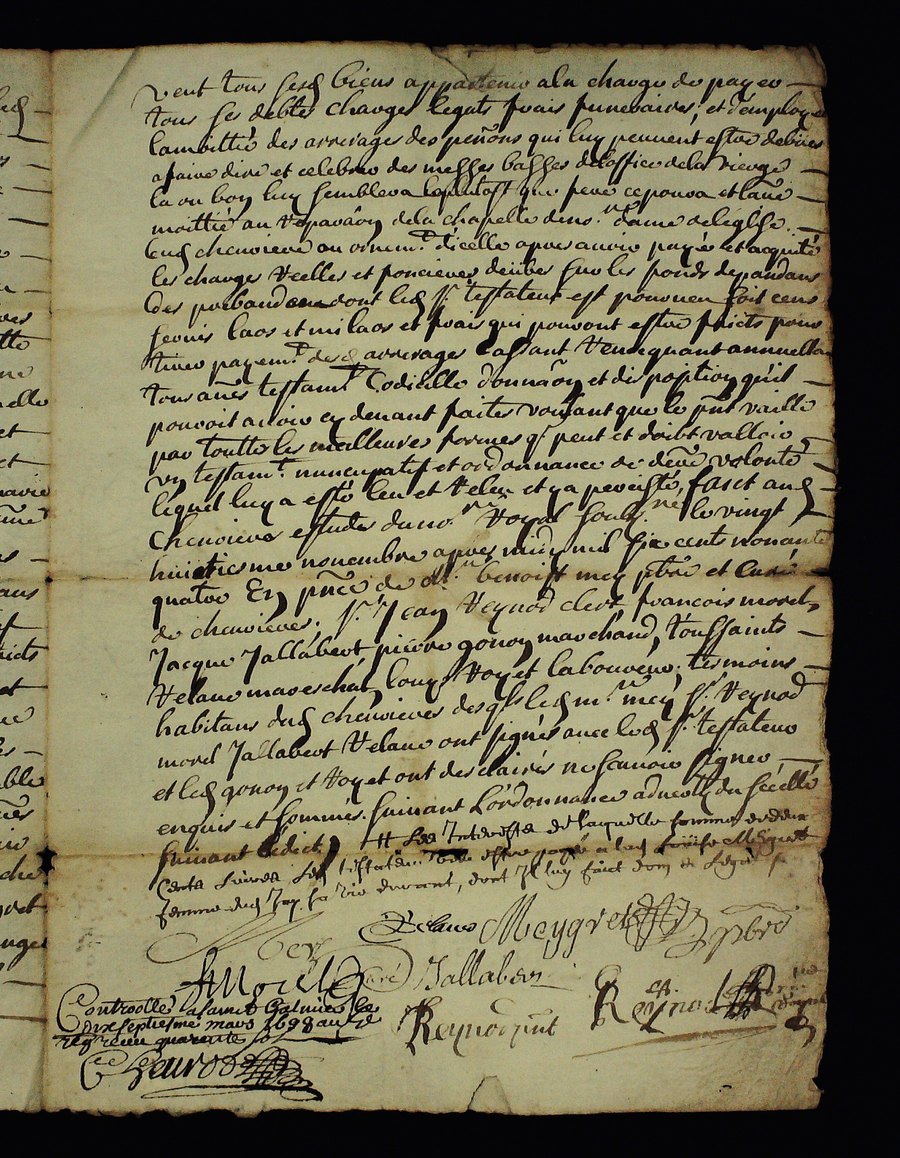 vent tous sesd biens appartenir a la charge de payer
tous se debte charges legats frais funeraires, et demployer
la moittié des arrerages des peñons qui luy peuvent estre debües
a faire dire et celebrer des messes basses de loffice de la vierge
la ou bon luy semblera le plutost que fere ce poura et lautre
moittié au reparaôn de la chapelle de nr dame de leglise
dud chenieres ou ornemt dicelle apres avoir payé et acquité
les charges reelles et foncieres deübes sur les fonds depandans
des prebandes dont led sr testateur est pourveu soit cens
servis laos et milaos et frais qui pouront estre faicts pour
tirer payemt desd arrerages cassant revoquant annullan
tous aues testamt codicille donnaôn et disposition quil
pouvoit avoir cy devant faites voulant que le pnt vaille
par toutte les meilleures formes ql peut et doibt valloir
un testamt nuncupatif et ordonnance de derre volonté
lequel luy a esté leu et releu et y a percisté, faict aud
Chenieres estude du nore royal soubzné le vingt
huictiesme novembre apres midy mil six cents nonante
quatre En pnce de mre benoist mey ptre et curé
de chenieres, sr Jean Reynod clerc francois morel,
Jacque Jallabert pierre gonon marchand, toussaints
Velaue mareschal, louys Roy et laboureur, tesmoins
habitans dud chenieres desqls led mre mey sr Reynod
morel Jallabert Velaue ont signés avec led sr testateur
et led gonon et Roy et ont desclairés ne scavoir signer
enquis et sommés suivant l'ordonnance advertis du scéellé
suivant lédict # Les Interestz de laquelle somme de deux
Cents livres led testateur veut estre payé a lad
femme dud Jay sa vie durant, dont Il luy faict don et Legat
Mey Velaue Meygret ptre
AMorel curé Jallabert Reynod
Reynod pnt
Controollé a saint Galmier le
dix septiesme mars 1698 au
reg receu quarente sols